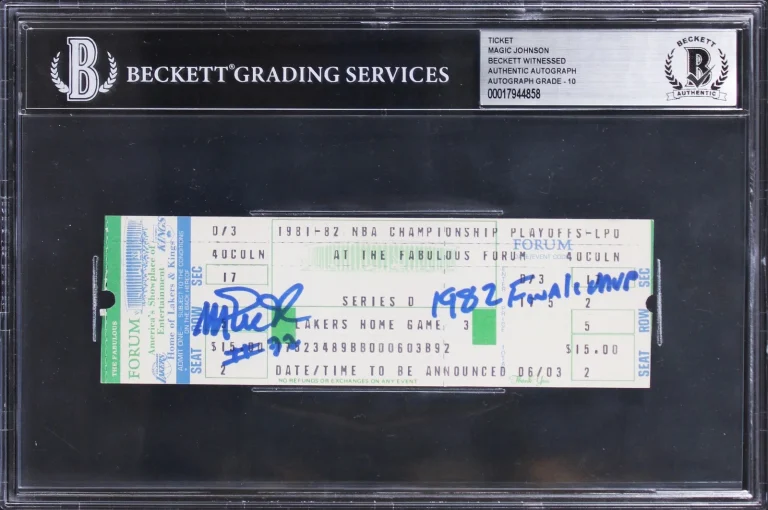 BECKETT® GRADING SERVICES
TICKET
MAGIC JOHNSON
BECKETT WITNESSED
AUTHENTIC AUTOGRAPH
AUTOGRAPH GRADE - 10
00017944858
BECKETT
AUTHENTIC
THE FABULOUS
FORUM
America's Showplace of
Entertainment
Home of Lakers & Kings
LAKERS
KINGS
ADMIT ONE
SEAT ROW SEC
D/3
40COLN
17
$15.00
2
1981-82 NBA CHAMPIONSHIP PLAYOFFS-LPU
AT THE FABULOUS FORUM
SERIES D
LAKERS HOME GAME 3
DATE/TIME TO BE ANNOUNCED 06/03
NO REFUNDS OR EXCHANGES ON ANY EVENT
Thank You
FORUM
D/3
40COLN
2
5
$15.00
2
SEAT ROW SEC
1982 Finals MVP